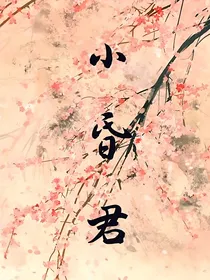 小昏君